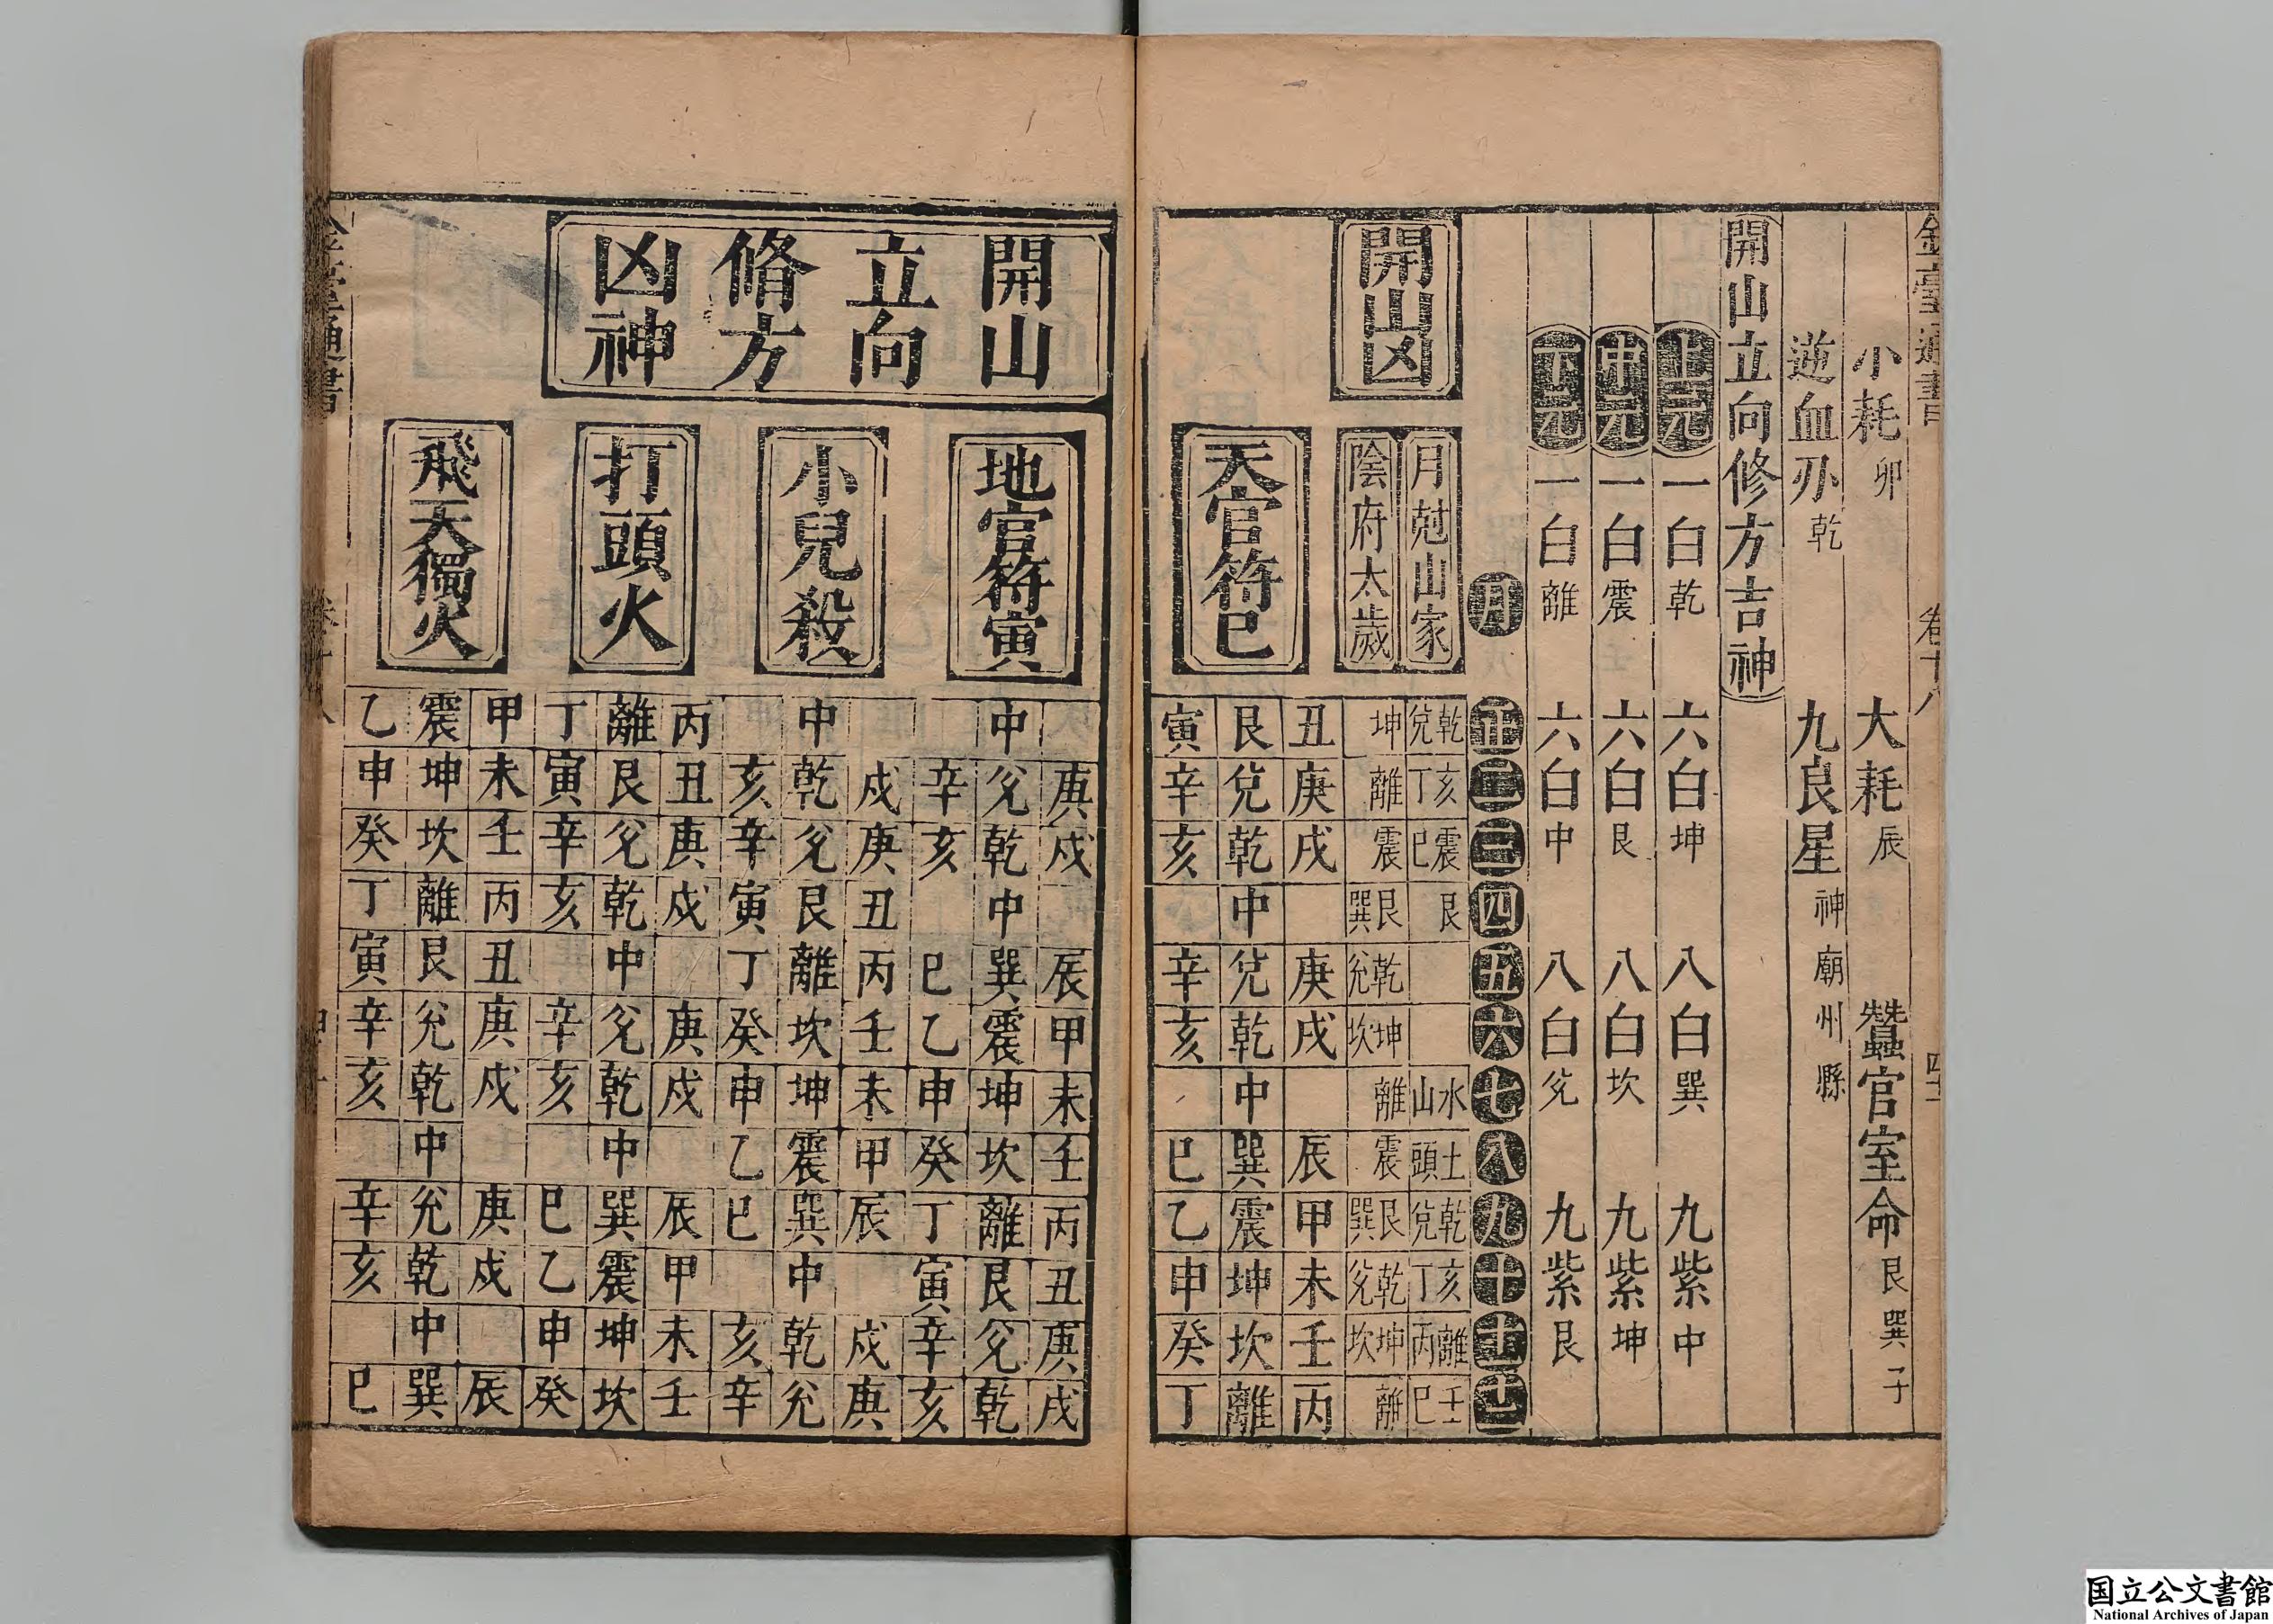 金臺通書 卷十八
小耗卯 大耗辰 蠶官室命艮巽子
逆血刃乾 九良星神廟州縣
開山立向修方吉神
上元 一白乾 六白坤 八白巽 九紫中
中元 一白震 六白艮 八白坎 九紫坤
下元 一白離 六白中 八白兌 九紫艮
月 正 二 三 四 五 六 七 八 九 十 十一 十二
開山凶
月尅山家 乾兌 亥丁 震巳 艮 水山 土頭 乾兌 亥丁 離丙 壬巳
陰府太歲 坤 離 震 艮巽 乾兌 坤坎 離 震 艮巽 乾兌 坤坎 離
天官符巳
丑 庚 戌 庚 戌 辰 甲 未 壬 丙
艮 兌 乾 中 兌 乾 中 巽 震 坤 坎 離
寅 辛 亥 辛 亥 巳 乙 申 癸 丁
開山立向脩方凶神
地官符寅
庚 戌 辰 甲 未 壬 丙 丑 庚 戌
中 兌 乾 中 巽 震 坤 坎 離 艮 兌 乾
辛 亥 巳 乙 申 癸 丁 寅 辛 亥
小兒殺
戌 庚 丑 丙 壬 未 甲 辰 戌 庚
中 乾 兌 艮 離 坎 坤 震 巽 中 乾 兌
亥 辛 寅 丁 癸 申 乙 巳 亥 辛
打頭火
丙 丑 庚 戌 庚 戌 辰 甲 未 壬
離 艮 兌 乾 中 兌 乾 中 巽 震 坤 坎
丁 寅 辛 亥 辛 亥 巳 乙 申 癸
飛天獨火
甲 未 壬 丙 丑 庚 戌 庚 戌 辰
震 坤 坎 離 艮 兌 乾 中 兌 乾 中 巽
乙 申 癸 丁 寅 辛 亥 辛 亥 巳
通書
国立公文書館
National Archives of Japan